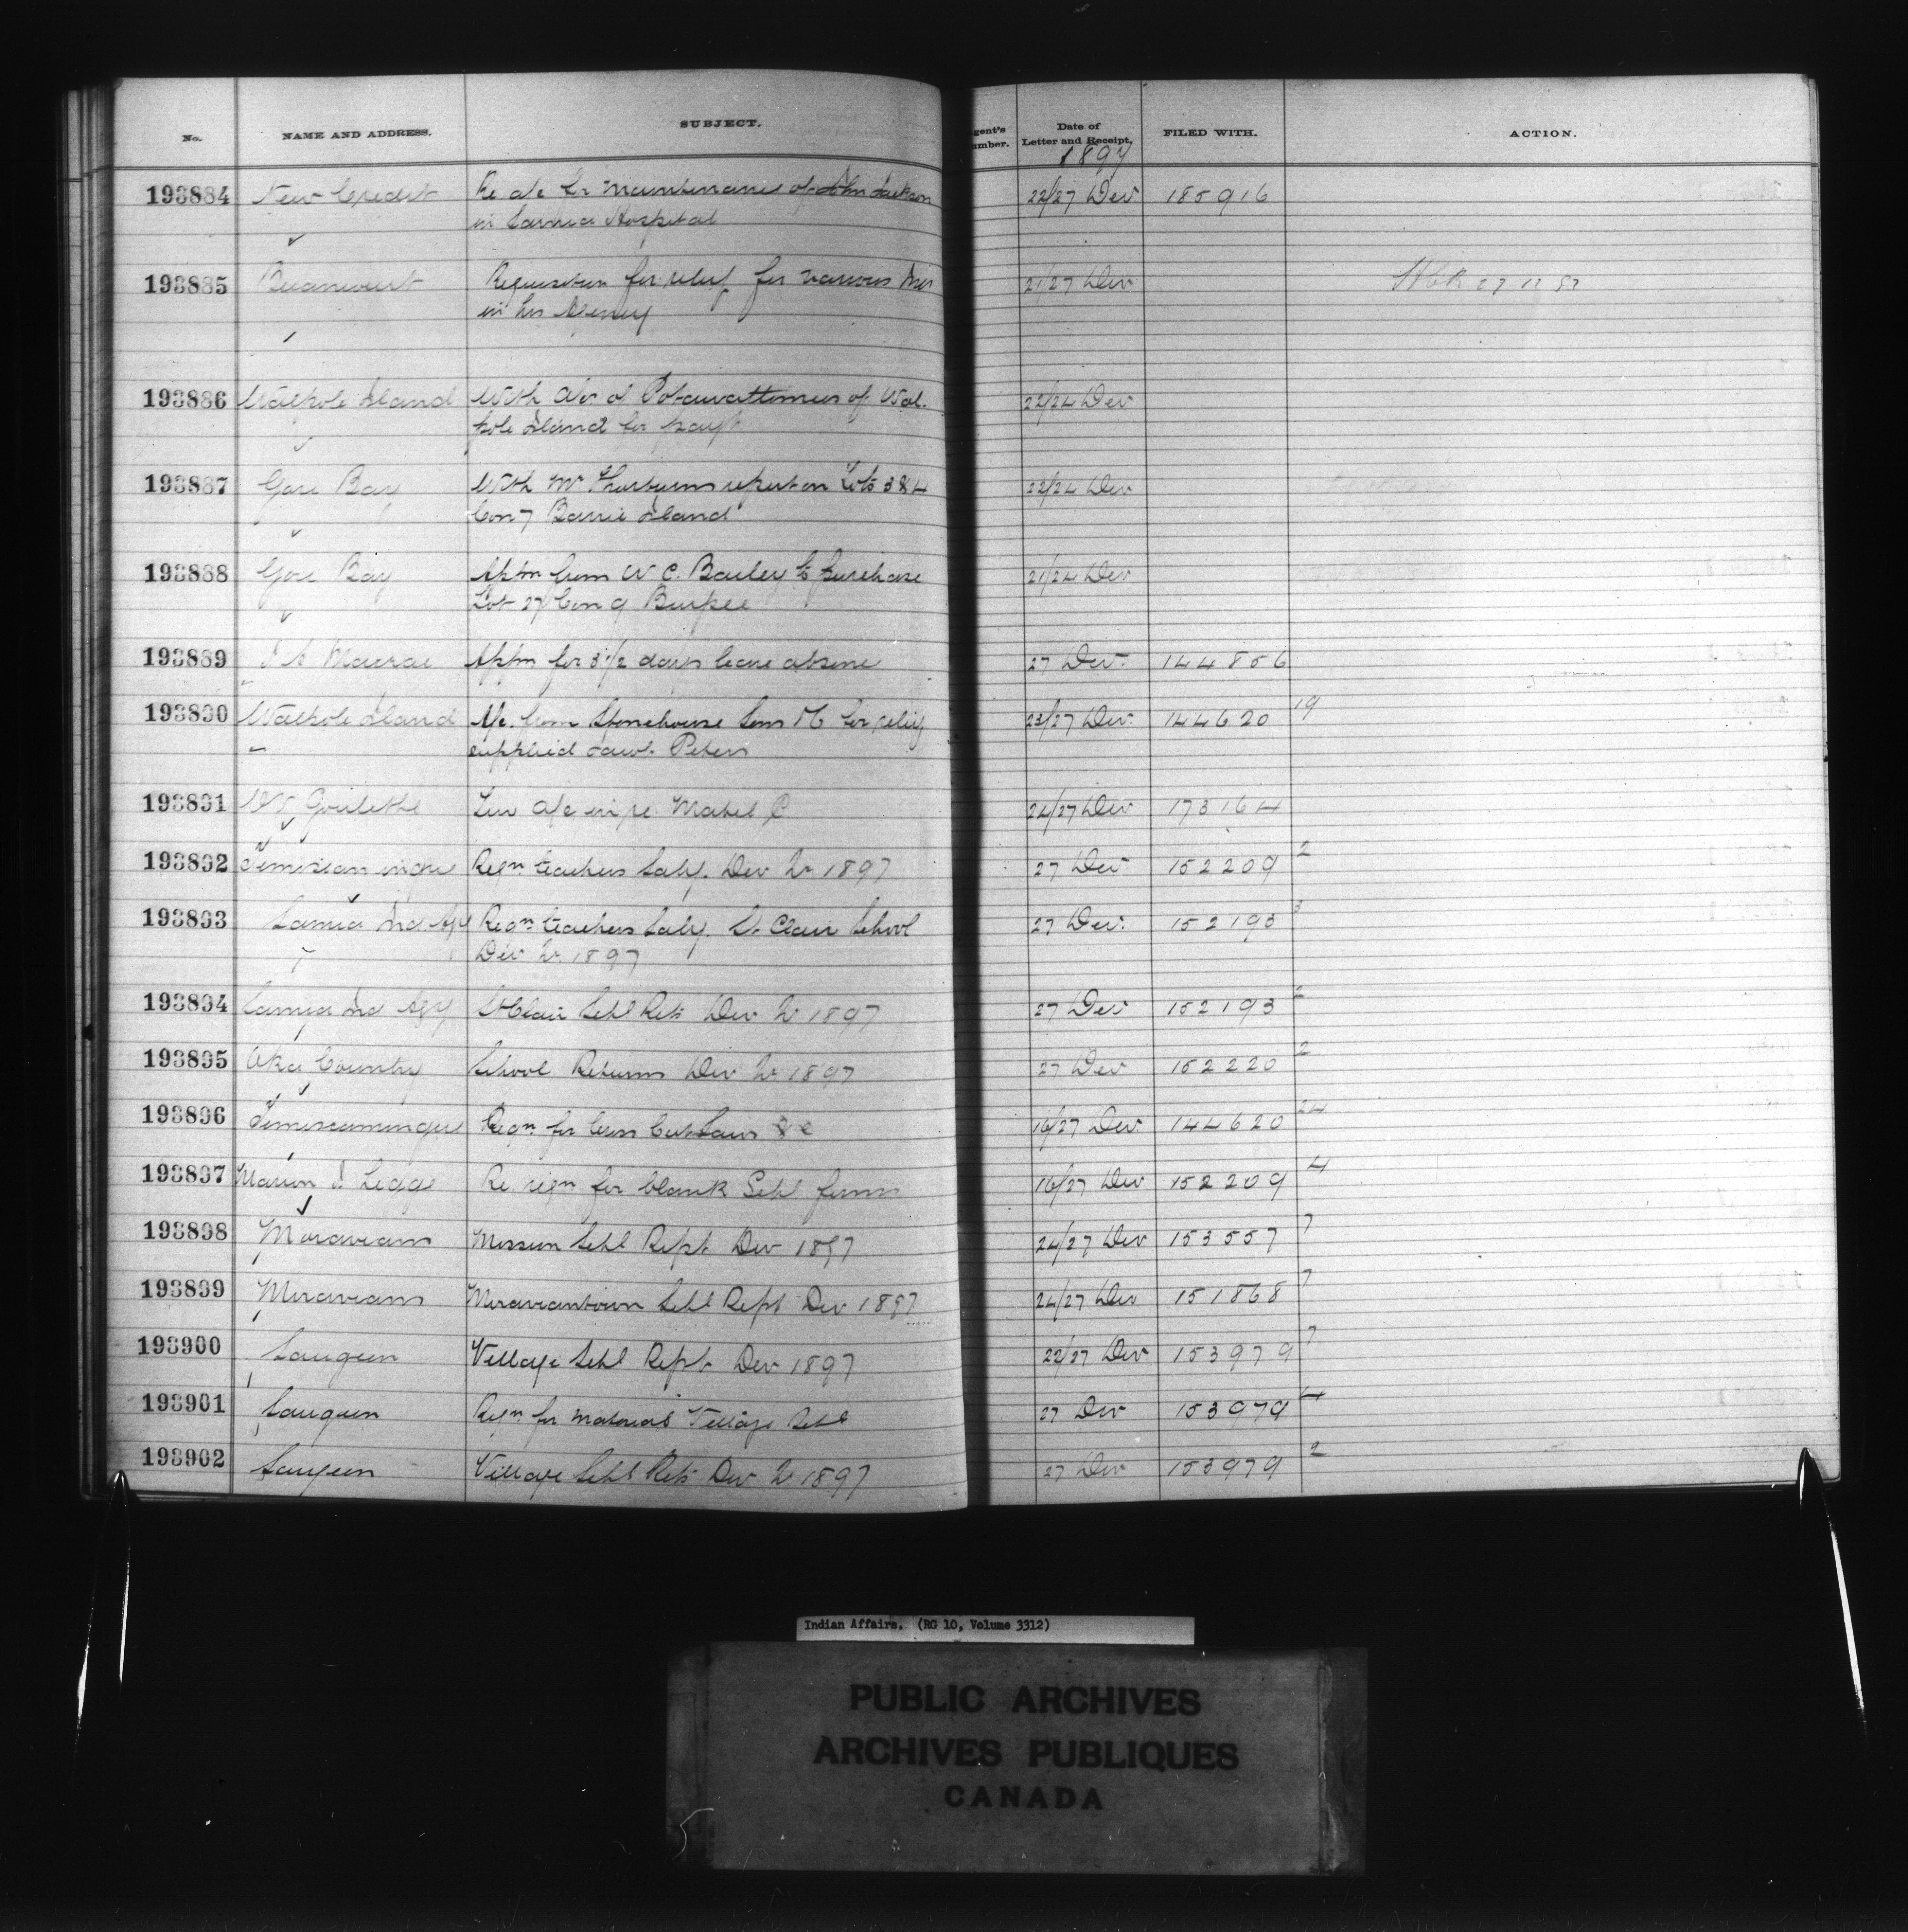 No. NAME AND ADDRESS. SUBJECT. gent's umber. Date of Letter and Receipt, 1897 FILED WITH. ACTION.
193884 New Credit Re a/c for maintenance of John Jackson 22/27 Dec 185916
in Sarnia Hospital
193885 Requisition for relief for various Inds 21/27 Dec
in his Agency
193886 Walpole Island With of Potawattomies of Wal- 22/24 Dec
pole Island for payt
193887 Gore Bay With Mr Thorburns report on Lots 3 & 4 22/24 Dec
Con 7 Barrie Island
193888 Gore Bay Appn from W C. Bailey to purchase 21/24 Dec
Lot 27 Con 9 Burpee
193889 Macrae Appn for 3 1/2 days leave absence 27 Dec. 144856
193890 Walpole Island A/c from Stonehouse Sons for relief 23/27 Dec. 144620 19
supplied Peters
193891 a/c in re Mabel 24/27 Dec 173164
193892 Temiscamingue Reqn teachers Saly. Dec Qr 1897 27 Dec 152209 2
193893 Sarnia Ind Agy Reqn teachers Saly. St Clair School 27 Dec. 152193 3
Dec Qr 1897
193894 Sarnia Ind Agy St Clair Schl Rets Dec Qr 1897 27 Dec 152193 2
193895 Oka Country School Returns Dec Qr 1897 27 Dec 152220 2
193896 Temiscamingue Reqn for Cross Cut Saws &c 16/27 Dec. 144620 24
193897 Marion J Legge Re reqn for blank Schl forms 16/27 Dec 152209 4
193898 Moravians Mission Schl Rept Dec 1897 24/27 Dec 153557 7
193899 Moravians Moraviantown Schl Rept Dec 1897 24/27 Dec 151868 7
193900 Saugeen Village Schl Rept Dec 1897 22/27 Dec 153979 7
193901 Saugeen Reqn for material Village Schl 27 Dec 153979 4
193902 Saugeen Village Schl Rets Dec Qr 1897 27 Dec 153979 2
Indian Affairs. (RG 10, Volume 3312)
PUBLIC ARCHIVES
ARCHIVES PUBLIQUES
CANADA